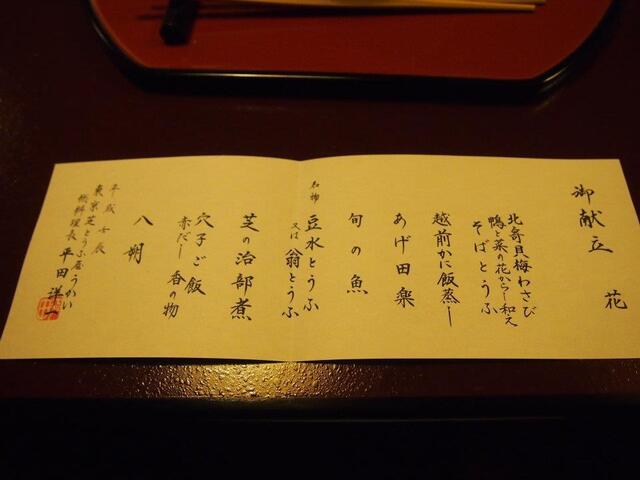 御献立 花
北寄貝梅わさび
鴨と菜の花からし和え
そばとうふ
越前かに飯蒸し
あげ田楽
旬の魚
名物 豆水とうふ
又は 翁とうふ
芝の治部煮
穴子ご飯
赤だし 香の物
八朔
平成壬辰
東京芝とうふ屋うかい
総料理長 平田洋一